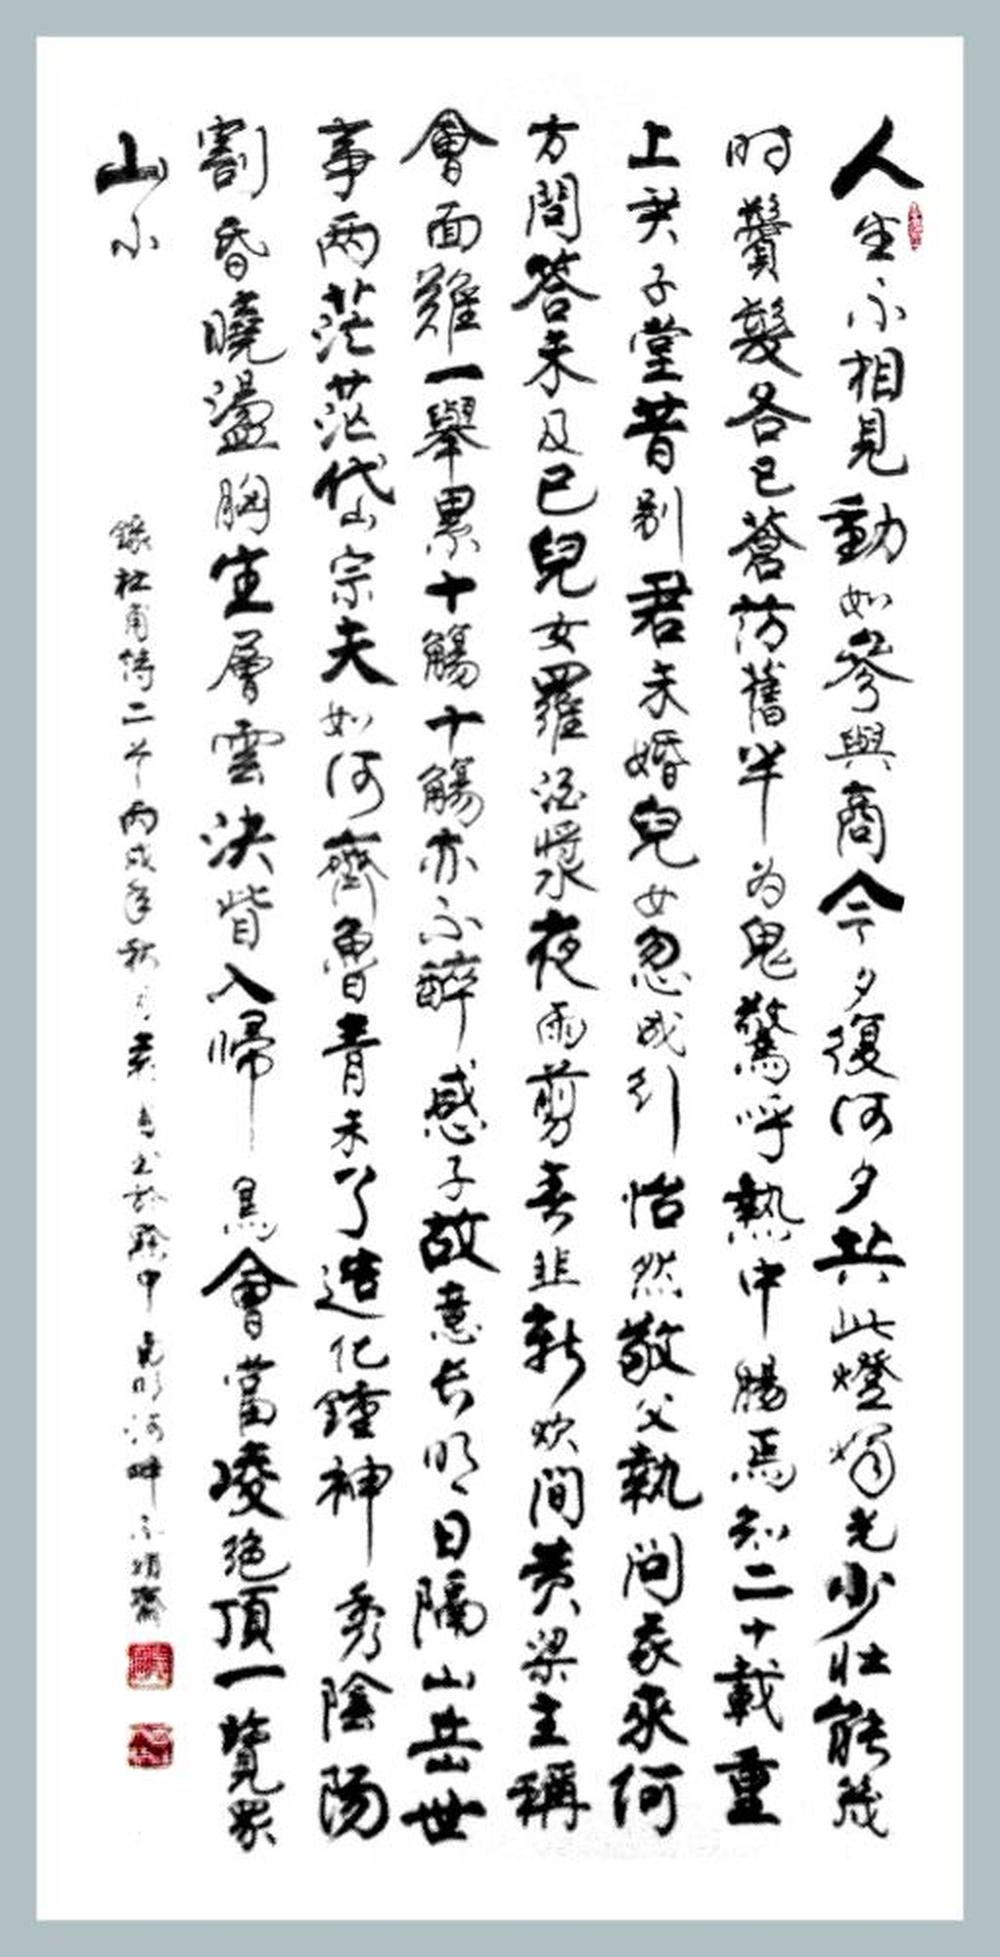 人生不相見動如參與商今夕復何夕共此燈燭光少壯能幾
时鬢髮各已蒼访舊半为鬼驚呼熱中腸焉知二十載重
上君子堂昔别君未婚兒女忽成行怡然敬父執问我來何
方問答未及已兒女羅酒漿夜雨剪春韭新炊间黄粱主稱
會面難一舉累十觴十觴亦不醉感子故意长明日隔山岳世
事两茫茫岱宗夫如何齊魯青未了造化鍾神秀陰陽
割昏曉盪胸生層雲決眥入帰鳥會當凌絕頂一覽眾
山小
錄杜甫诗二首丙戌年秋月书於中河畔齋